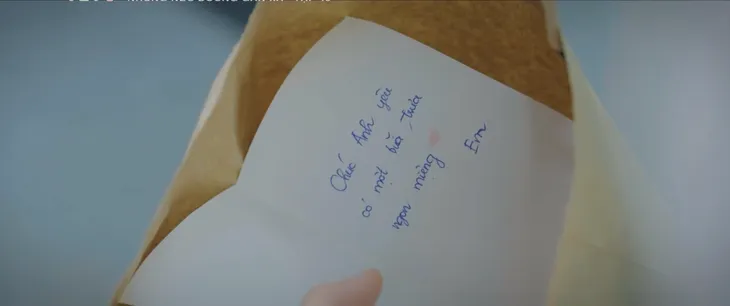 Chúc Anh yêu
có một bữa trưa
ngon miệng
Em